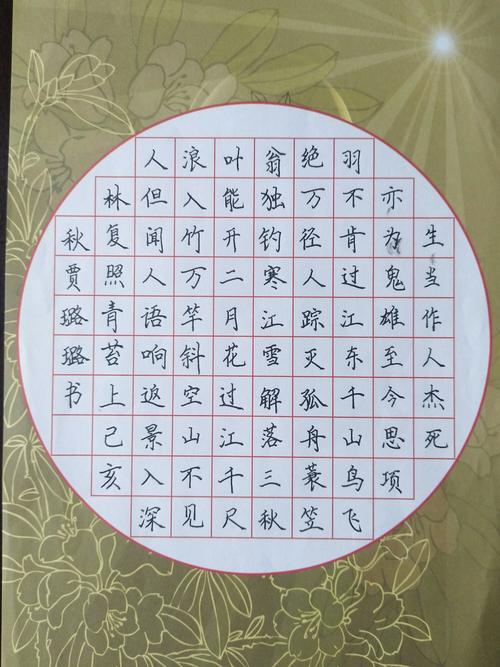 生当作人杰死
亦为鬼雄至今思项
羽不肯过江东千山鸟飞
绝万径人踪灭孤舟蓑笠
翁独钓寒江雪解落三秋
叶能开二月花过江千尺
浪入竹万竿斜空山不见
人但闻人语响返景入深
林复照青苔上己亥
秋贾璐璐书